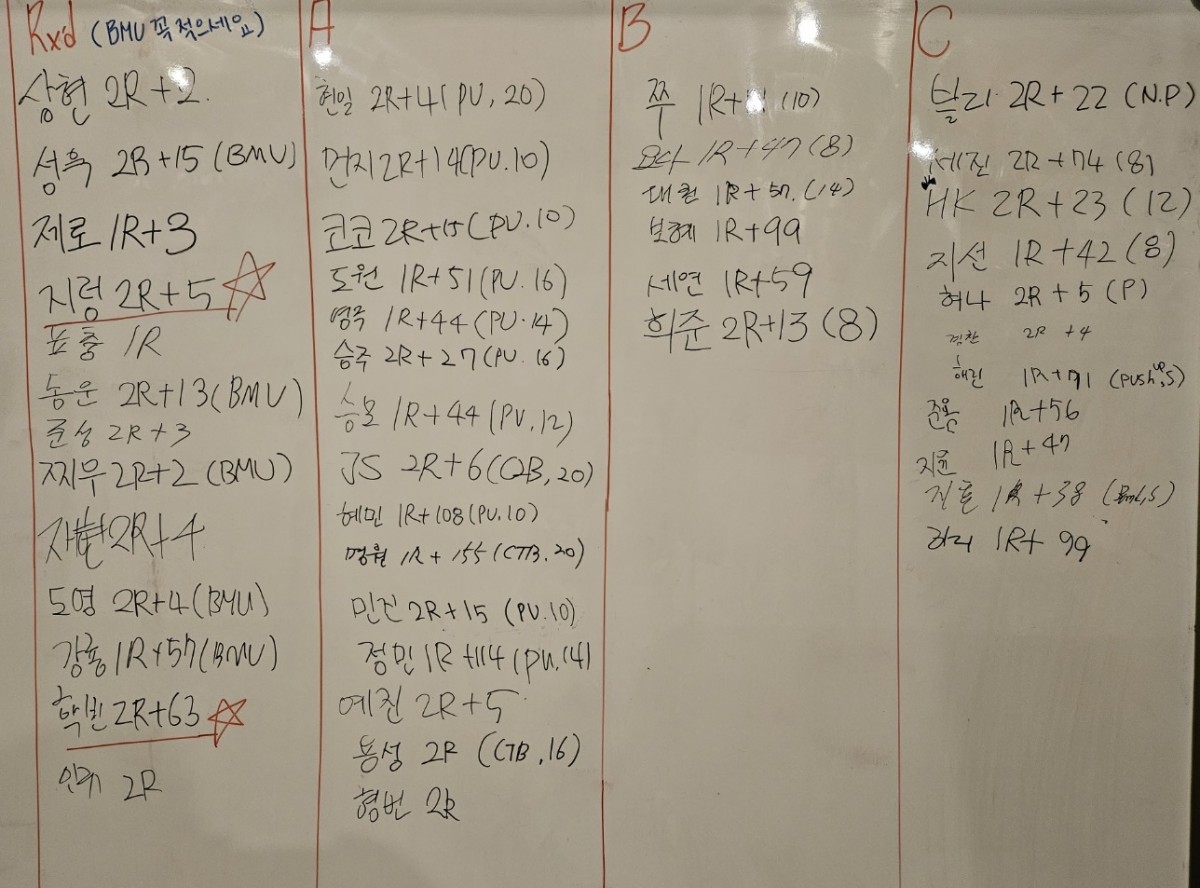 Rx'd (BMU 꼭 적으세요)
상현 2R+2
성욱 2R+15 (BMU)
제로 1R+3
지렁 2R+5
표충 1R
동운 2R+13 (BMU)
준성 2R+3
찌우 2R+2 (BMU)
2R+4
도영 2R+4 (BMU)
강룡 1R+57 (BMU)
학빈 2R+63
2R
A
현일 2R+4 (PU, 20)
먼지 2R+14 (PU.10)
코코 2R+15 (PU.10)
도원 1R+51 (PU.16)
영주 1R+44 (PU.14)
승주 2R+27 (PU.16)
승모 1R+44 (PU,12)
JS 2R+6 (C2B,20)
혜민 1R+108 (PU.10)
명훤 1R+155 (CTB.20)
민진 2R+15 (PU.10)
정민 1R+114 (PU.14)
예진 2R+5
용성 2R (CTB,16)
형번 2R
B
쭈 1R+ (10)
요다 1R+47 (8)
대원 1R+57. (14)
보혜 1R+99
세연 1R+59
희준 2R+13 (8)
C
블리 2R+22 (N.P)
세진 2R+74 (8)
HK 2R+23 (12)
지선 1R+42 (8)
허나 2R+5 (P)
2R+4
해린 1R+71 (Push up,S)
준용 1R+56
지윤 1R+47
1R+38
하리 1R+99